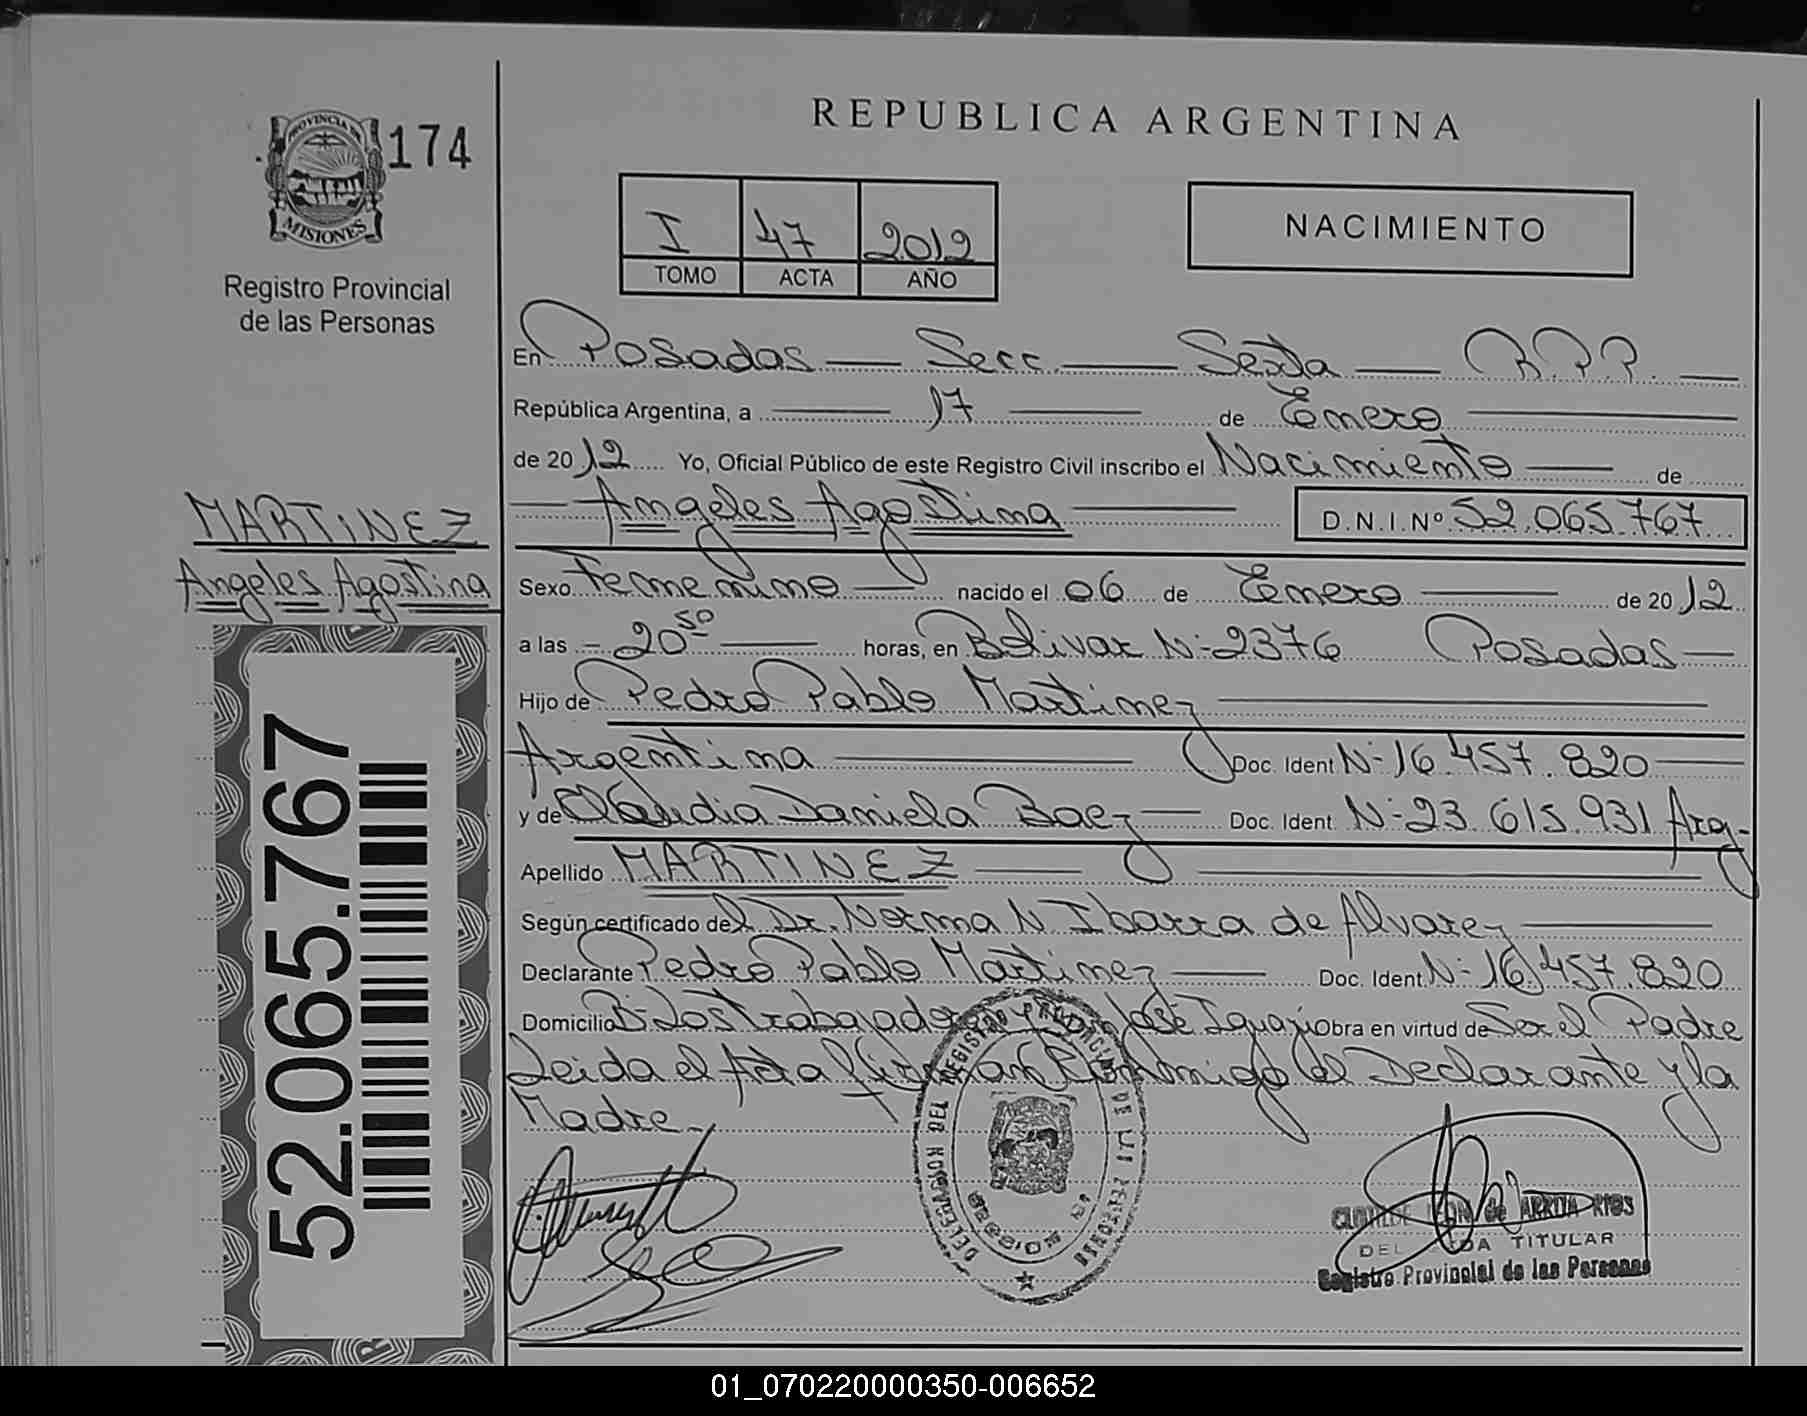 REPUBLICA ARGENTINA
PROVINCIA DE
MISIONES
174
Registro Provincial
de las Personas
I 47 2012
TOMO ACTA AÑO
NACIMIENTO
En Posadas Secc. Sexta R.P.P.
República Argentina, a 17 de Enero
de 2012 Yo, Oficial Público de este Registro Civil inscribo el Nacimiento de
Angeles Agostina D.N.I. Nº 52.065.767
MARTINEZ
Angeles Agostina
Sexo Femenino nacido el 06 de Enero de 2012
a las 20 50 horas, en Bolivar Nº 2376 Posadas
Hijo de Pedro Pablo Martinez
Argentina Doc. Ident Nº 16.457.820
y de Claudia Daniela Baez Doc. Ident. Nº 23.615.931 Arg
Apellido MARTINEZ
Según certificado del Dr. Norma N Ibarra de Alvarez
Declarante Pedro Pablo Martinez Doc. Ident. Nº 16.457.820
Domicilio Bº Los Trabajadores José Obra en virtud de Ser el Padre
Leida el Acta firman Conmigo el Declarante y la
Madre
52.065.767
DELEGACION DEL REGISTRO PROVINCIAL DE LAS PERSONAS
DE ARRITA RIOS
TITULAR
Registro Provincial de las Personas
01_070220000350-006652